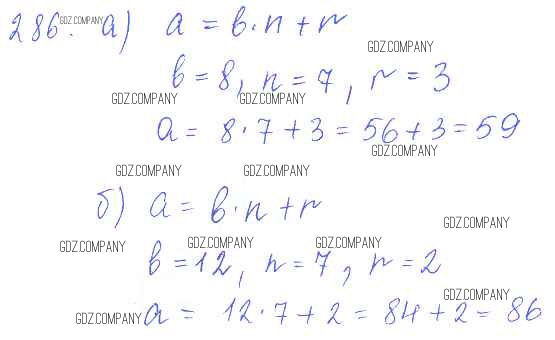 286. а) a = b·n + r
b = 8, n = 7, r = 3
a = 8·7 + 3 = 56 + 3 = 59
б) a = b·n + r
b = 12, n = 7, r = 2
a = 12·7 + 2 = 84 + 2 = 86
GDZ.COMPANY
GDZ.COMPANY
GDZ.COMPANY
GDZ.COMPANY
GDZ.COMPANY
GDZ.COMPANY
GDZ.COMPANY
GDZ.COMPANY
GDZ.COMPANY
GDZ.COMPANY
GDZ.COMPANY
GDZ.COMPANY
GDZ.COMPANY